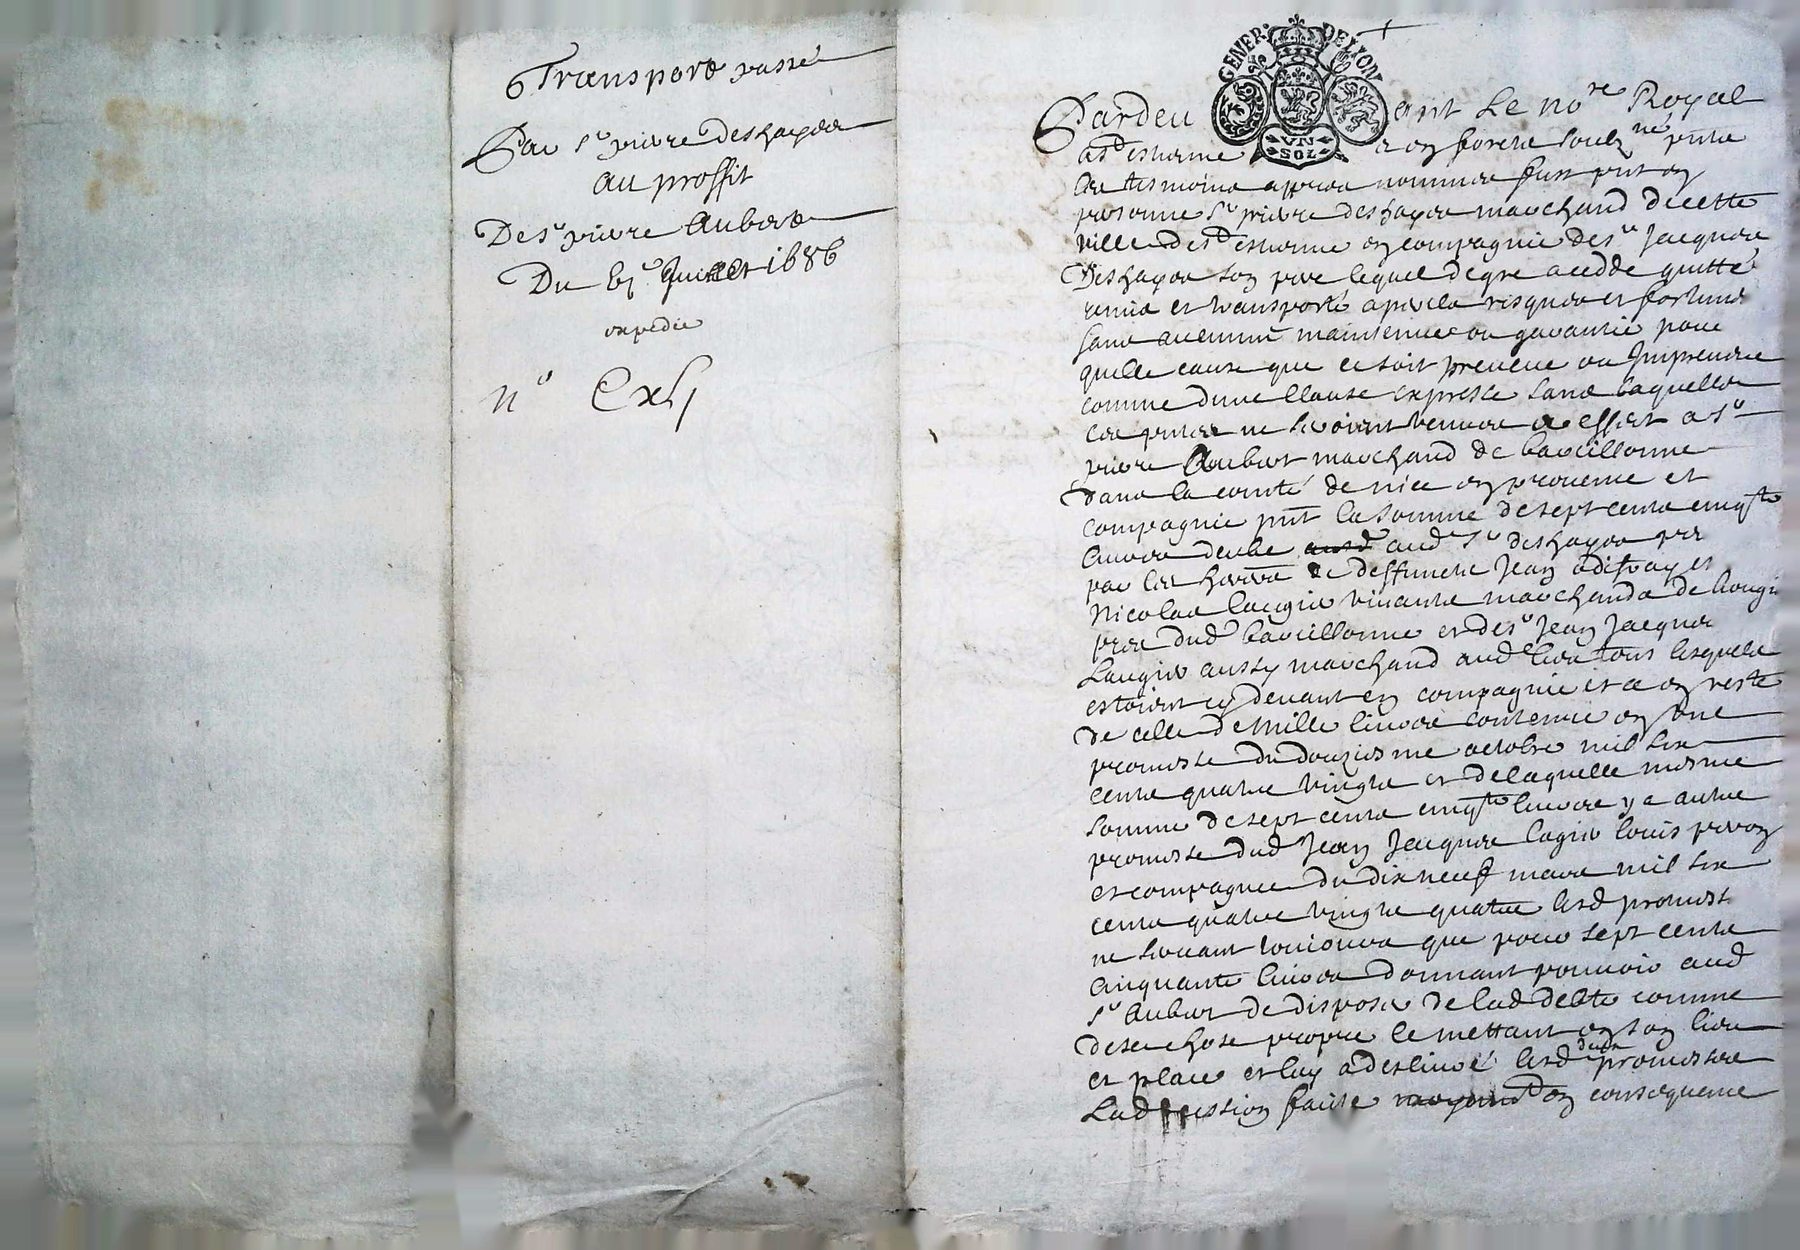 6 Transport passé
Par Sr pierre deshayes
au proffit
De Sr pierre Aubert
Du Juillet 1686
expedié
no Cxlj
GENER. DE LYON
VN
SOL
Pardeuant Le nore Royal
a St estienne en forestz soubzné pnte
les tesmoins appres nommes fust pnt en
personne Sr pierre deshayes marchand de cette
ville de St estienne en compagnie de Sr Jacques
Deshayes son pere lequel de gre a cedde quitté
remis et transporté a risques et fortunes
sans aucune maintenue ou garantie pour
quelle cause que ce soit preueue ou Impreueue
comme dune Clause expresse sans laquelle
ces pntes ne seroient venues a effect a Sr
pierre Aubert marchand de barcillonne
dans la comté de nice en prouence et
compagnie pnt la somme de sept cents cinqte
liures deube aud Sr deshayes pere
par les hoirs de deffuncts Jean et
Nicolas laugier viuants marchands de
pres dud barcillonne et de Sr Jean Jacques
Laugier aussy marchand aud lieu tous lesquels
estoient cy deuant en compagnie et ce en reste
de celle de Mille liures contenue en vne
promesse du douziesme octobre mil six
cents quatre vingts et de laquelle mesme
somme de sept cents cinqte liures y a autre
promesse dud Jean Jacques lagier louis
et compagnie du dix neuf mars mil six
cents quatre vingts quatre lesd promesses
ne seruant tousiours que pour sept cents
cinquante liures donnant pouuoir aud
Sr Aubert de disposer de lad debte comme
de sa chose propre le mettant en son lieu
et place et luy a deliuré lesd deux promesses
Lad cession faicte en consequence